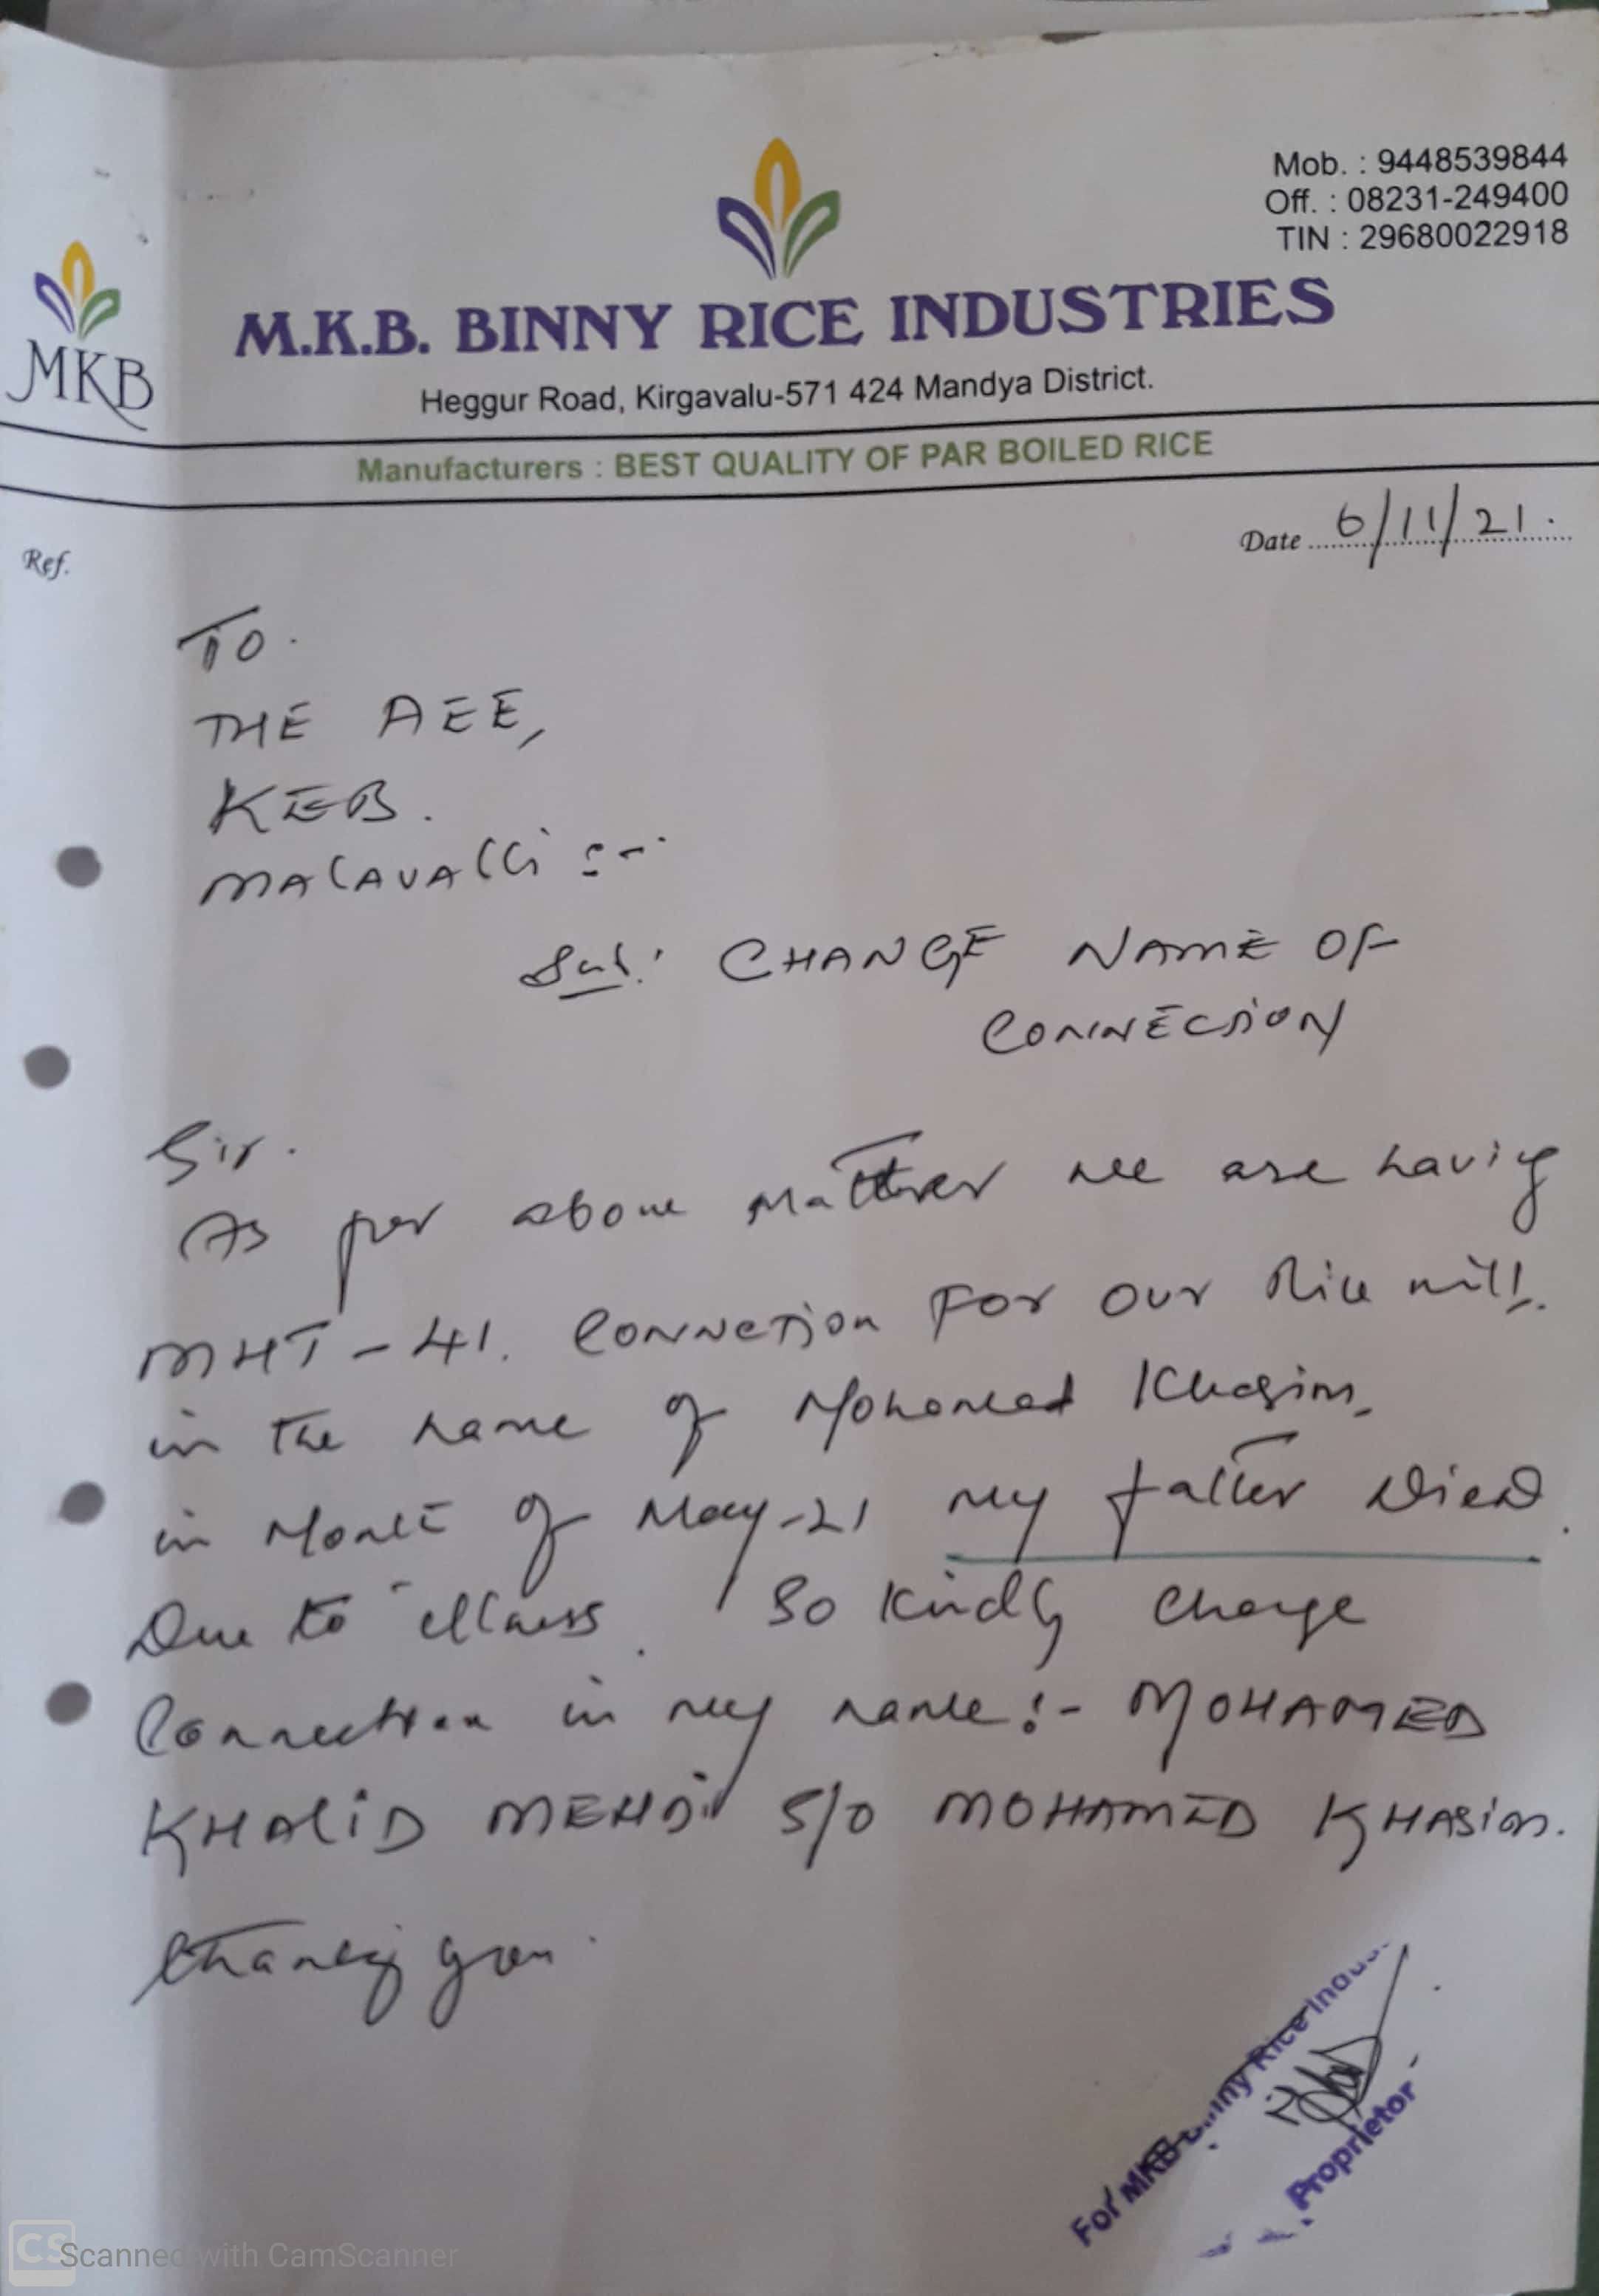 Mob. : 9448539844
Off. : 08231-249400
TIN : 29680022918
MKB
M.K.B. BINNY RICE INDUSTRIES
Heggur Road, Kirgavalu-571 424 Mandya District.
Manufacturers : BEST QUALITY OF PAR BOILED RICE
Ref.
Date 6/11/21.
To.
THE AEE,
KEB.
MALAVALLi :-
Sub: CHANGE NAME OF
CONNECTION
Sir.
As per above Matter we are having
MHT-41. Connetion For our Rice mill.
in the name of Mohamed Khasim,
in Month of May-21 my father Died.
Due to illness. So kindly change
Connection in my name :- MOHAMED
KHALiD MEHDi S/O MOHAMED KHASim.
thanking you.
For MKB Binny Rice Indus
Proprietor
CS Scanned with CamScanner